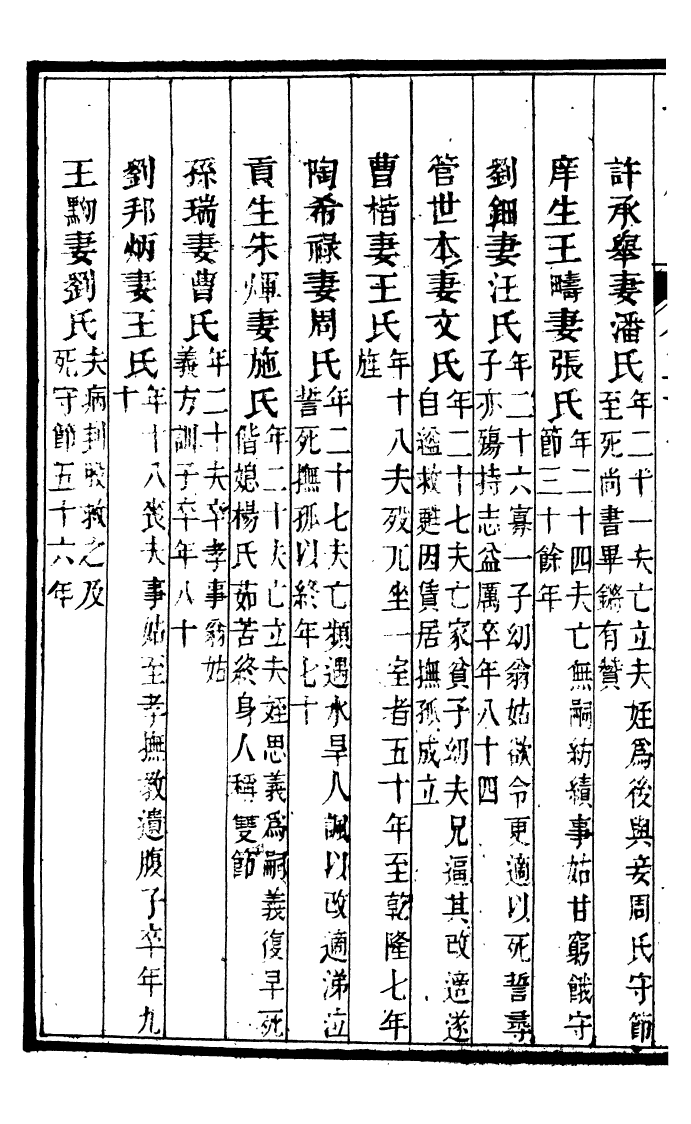 許承舉妻潘氏年二十一夫亡立夫姪爲後與妾周氏守節至死尚書畢鏘有贊
庠生王疇妻張氏年二十四夫亡無嗣紡績事姑甘窮餓守節三十餘年
劉鈿妻汪氏年二十六寡一子幼翁姑欲令更適以死誓尋子亦殤持志益厲卒年八十四
管世本妻文氏年二十七夫亡家貧子幼夫兄逼其改適遂自縊救甦因賃居撫孤成立
曹楷妻王氏年十八夫歿兀坐一室者五十年至乾隆七年旌
陶希祿妻周氏年二十七夫亡頻遇水旱人諷以改適涕泣誓死撫孤以終年七十
貢生朱煇妻施氏年二十夫亡立夫姪思義爲嗣義復早死偕媳楊氏茹苦終身人稱雙節
孫瑞妻曹氏年二十夫卒孝事翁姑義方訓子卒年八十
劉邦炳妻王氏年十八喪夫事姑至孝撫教遺腹子卒年九十
王㺃妻劉氏夫病刲股救之及死守節五十六年